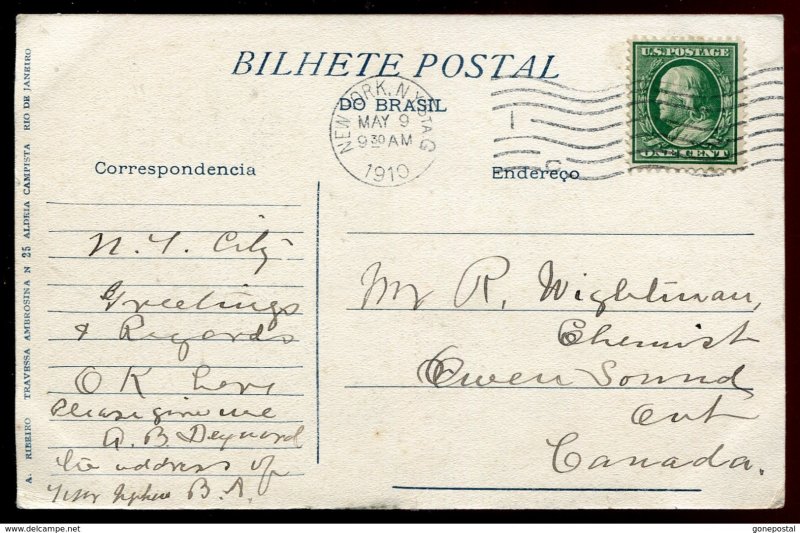 BILHETE POSTAL
DO BRASIL
NEW YORK, N.Y. STA G
MAY 9
9 30 AM
1910
U.S. POSTAGE
ONE CENT
Correspondencia
Endereço
N. Y. City
Greetings
& Regards
O K here
Please give me
A. B. Deynard
the address of
Your Nephew B. A.
Mr R. Wightman,
Chemist
Owen Sound
Ont
Canada.
A. RIBEIRO TRAVESSA AMBROSINA N 25 ALDEIA CAMPISTA RIO DE JANEIRO
gonepostal